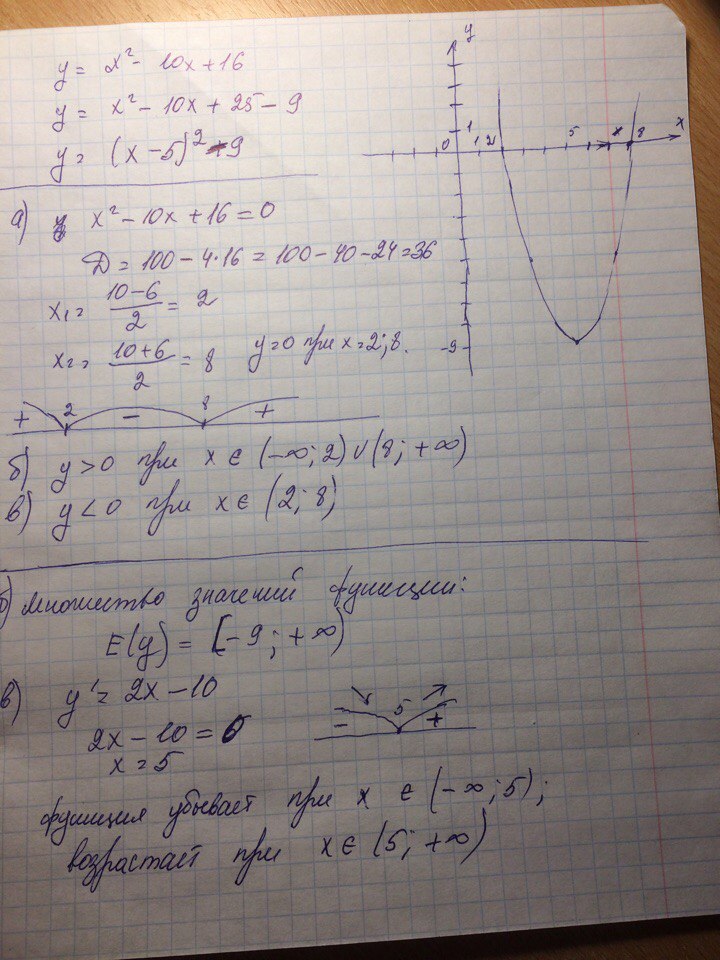 y = x² - 10x + 16
y = x² - 10x + 25 - 9
y = (x - 5)² - 9
а) x² - 10x + 16 = 0
D = 100 - 4·16 = 100 - 40 - 24 = 36
x₁ = (10-6)/2 = 2
x₂ = (10+6)/2 = 8 y=0 при x=2; 8.
+ 2 - 8 +
б) y > 0 при x ∈ (-∞; 2) ∪ (8; +∞)
в) y < 0 при x ∈ (2; 8)
б) множество значений функции:
E(y) = [-9; +∞)
в) y' = 2x - 10
2x - 10 = 0
x = 5
- 5 +
функция убывает при x ∈ (-∞; 5);
возрастает при x ∈ (5; +∞)
y
1
0 1 2 5 8 x
-9